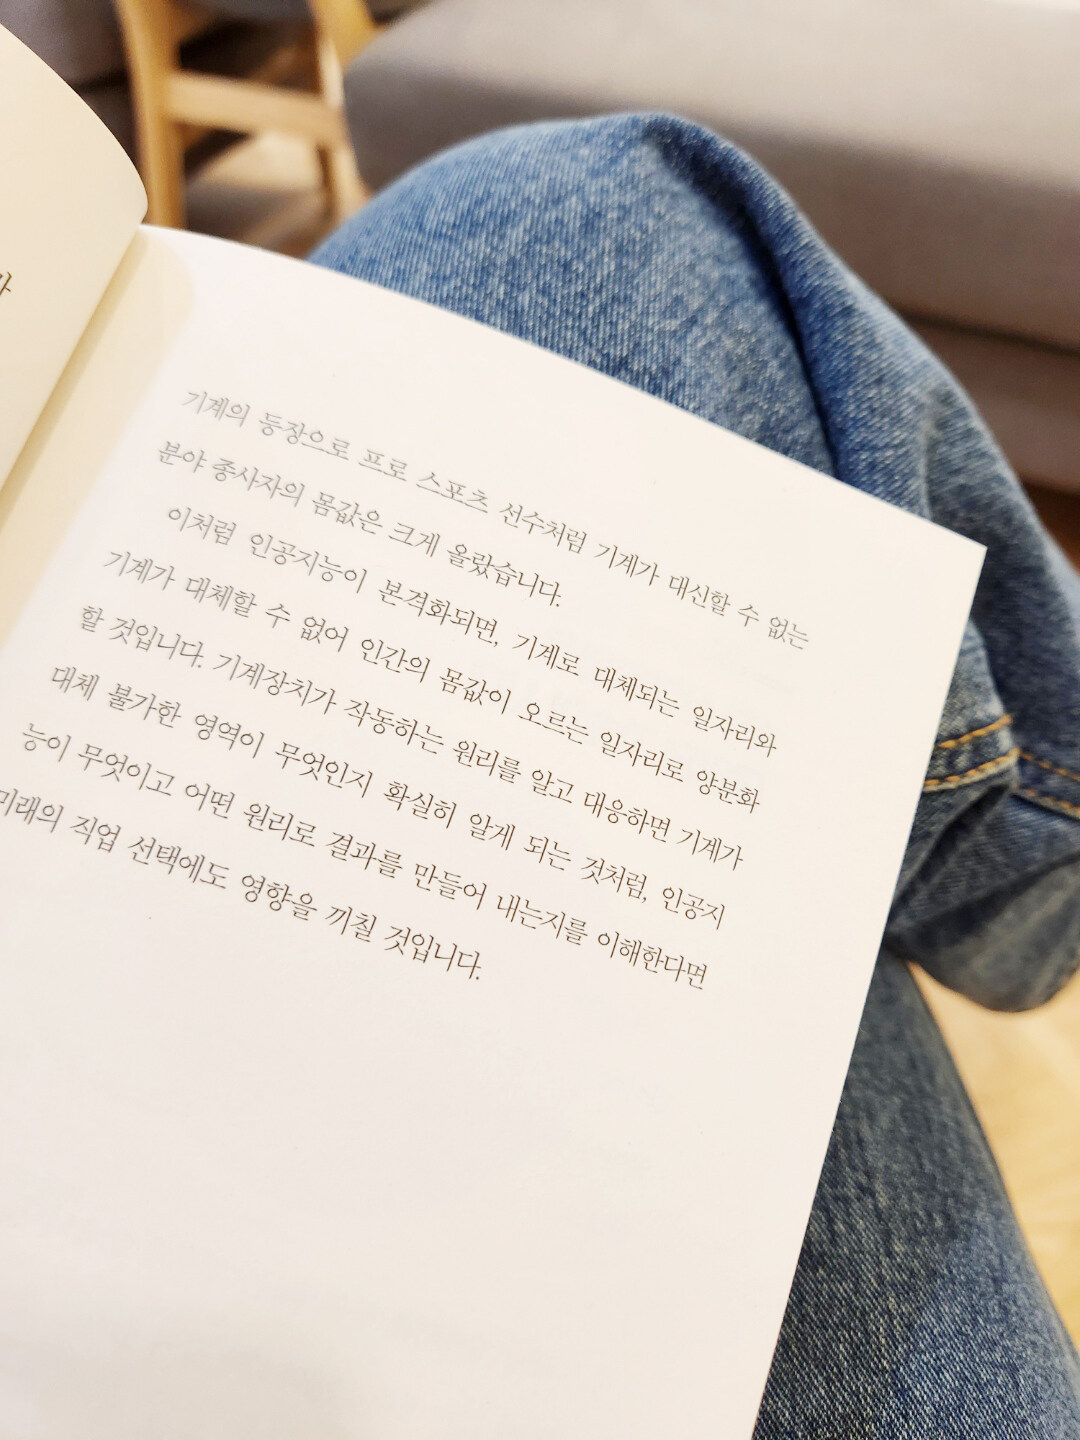 기계의 등장으로 프로 스포츠 선수처럼 기계가 대신할 수 없는
분야 종사자의 몸값은 크게 올랐습니다.
이처럼 인공지능이 본격화되면, 기계로 대체되는 일자리와
기계가 대체할 수 없어 인간의 몸값이 오르는 일자리로 양분화
할 것입니다. 기계장치가 작동하는 원리를 알고 대응하면 기계가
대체 불가한 영역이 무엇인지 확실히 알게 되는 것처럼, 인공지
능이 무엇이고 어떤 원리로 결과를 만들어 내는지를 이해한다면
미래의 직업 선택에도 영향을 끼칠 것입니다.